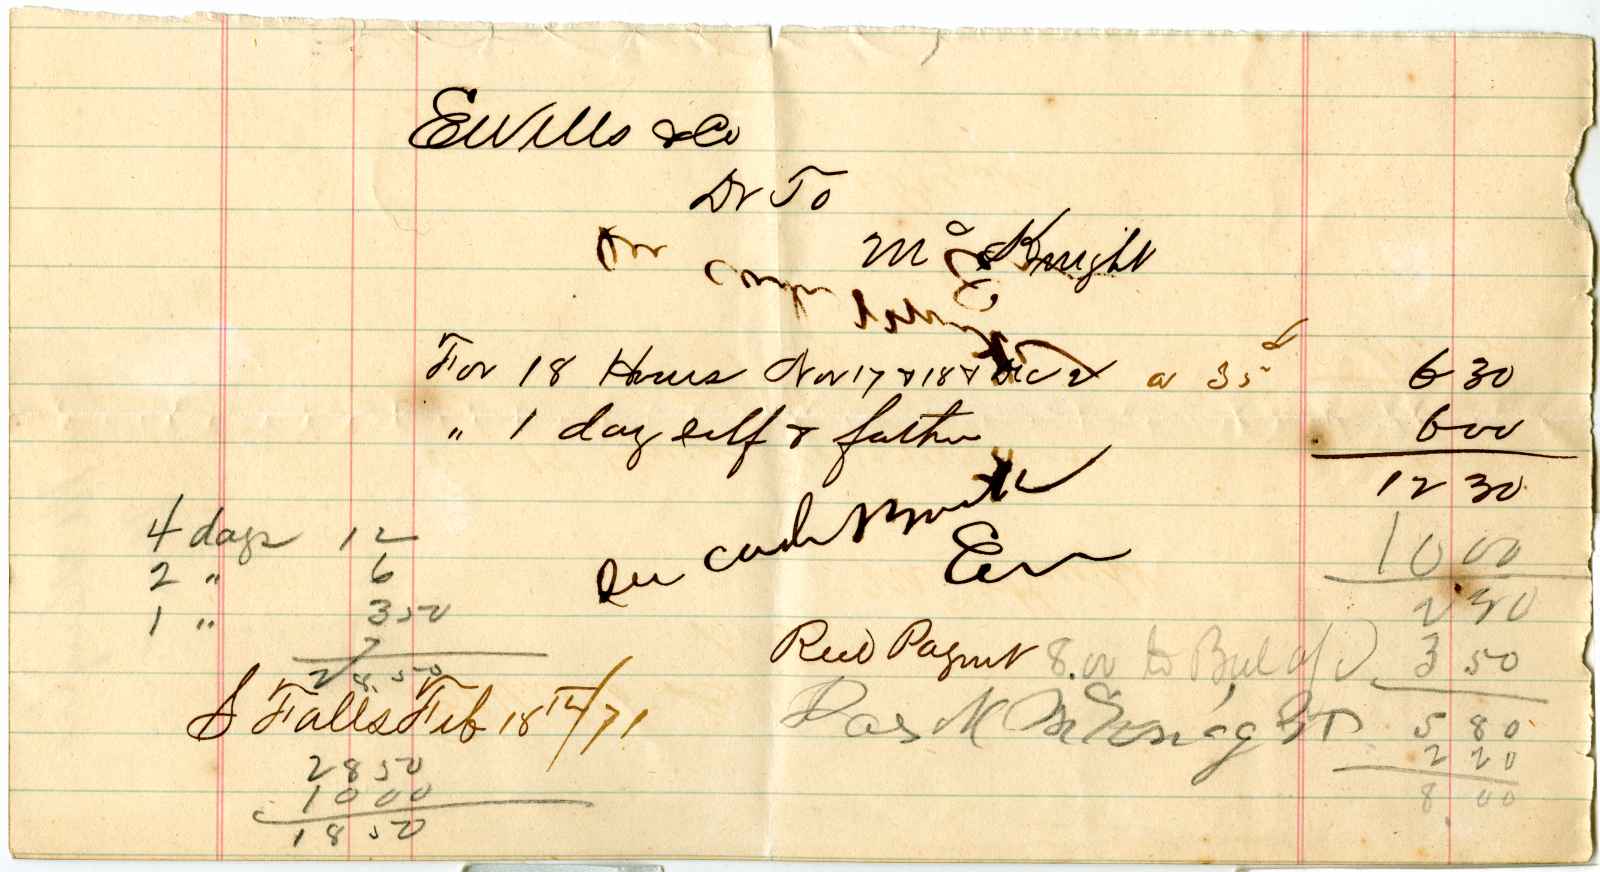 E Wells & Co
Dr To
Mc Knight
For 18 Hours Nov 17 & 18 & Dec 2 a 35 6 30
" 1 day self & father 6 00
12 30
4 days 12
10 00
2 " 6
2 30
1 " 3 50
Recd Paymt 8.00 to Bal of 3 50
2 8.50
S Falls Feb 18th /71
5 80
28 50
2 20
10 00
8 00
18 50